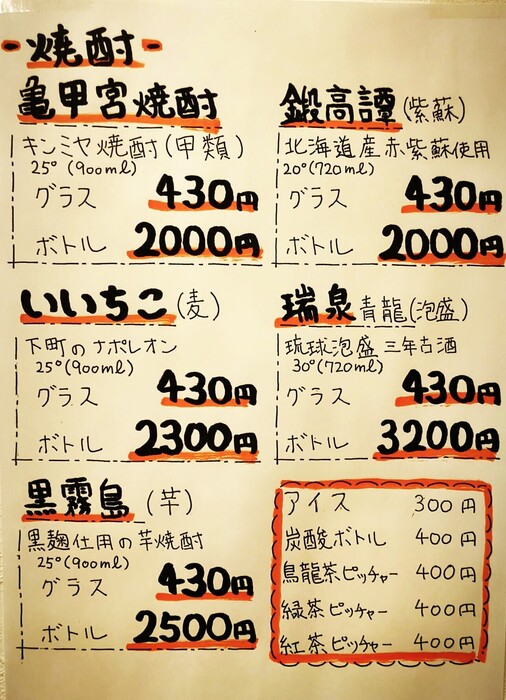 焼酎
亀甲宮焼酎
キンミヤ焼酎(甲類)
25°(900ml)
グラス 430円
ボトル 2000円
鍛高譚(紫蘇)
北海道産赤紫蘇使用
20°(720ml)
グラス 430円
ボトル 2000円
いいちこ(麦)
下町のナポレオン
25°(900ml)
グラス 430円
ボトル 2300円
瑞泉青龍(泡盛)
琉球泡盛 三年古酒
30°(720ml)
グラス 430円
ボトル 3200円
黒霧島(芋)
黒麹仕用の芋焼酎
25°(900ml)
グラス 430円
ボトル 2500円
アイス 300円
炭酸ボトル 400円
烏龍茶ピッチャー 400円
緑茶ピッチャー 400円
紅茶ピッチャー 400円